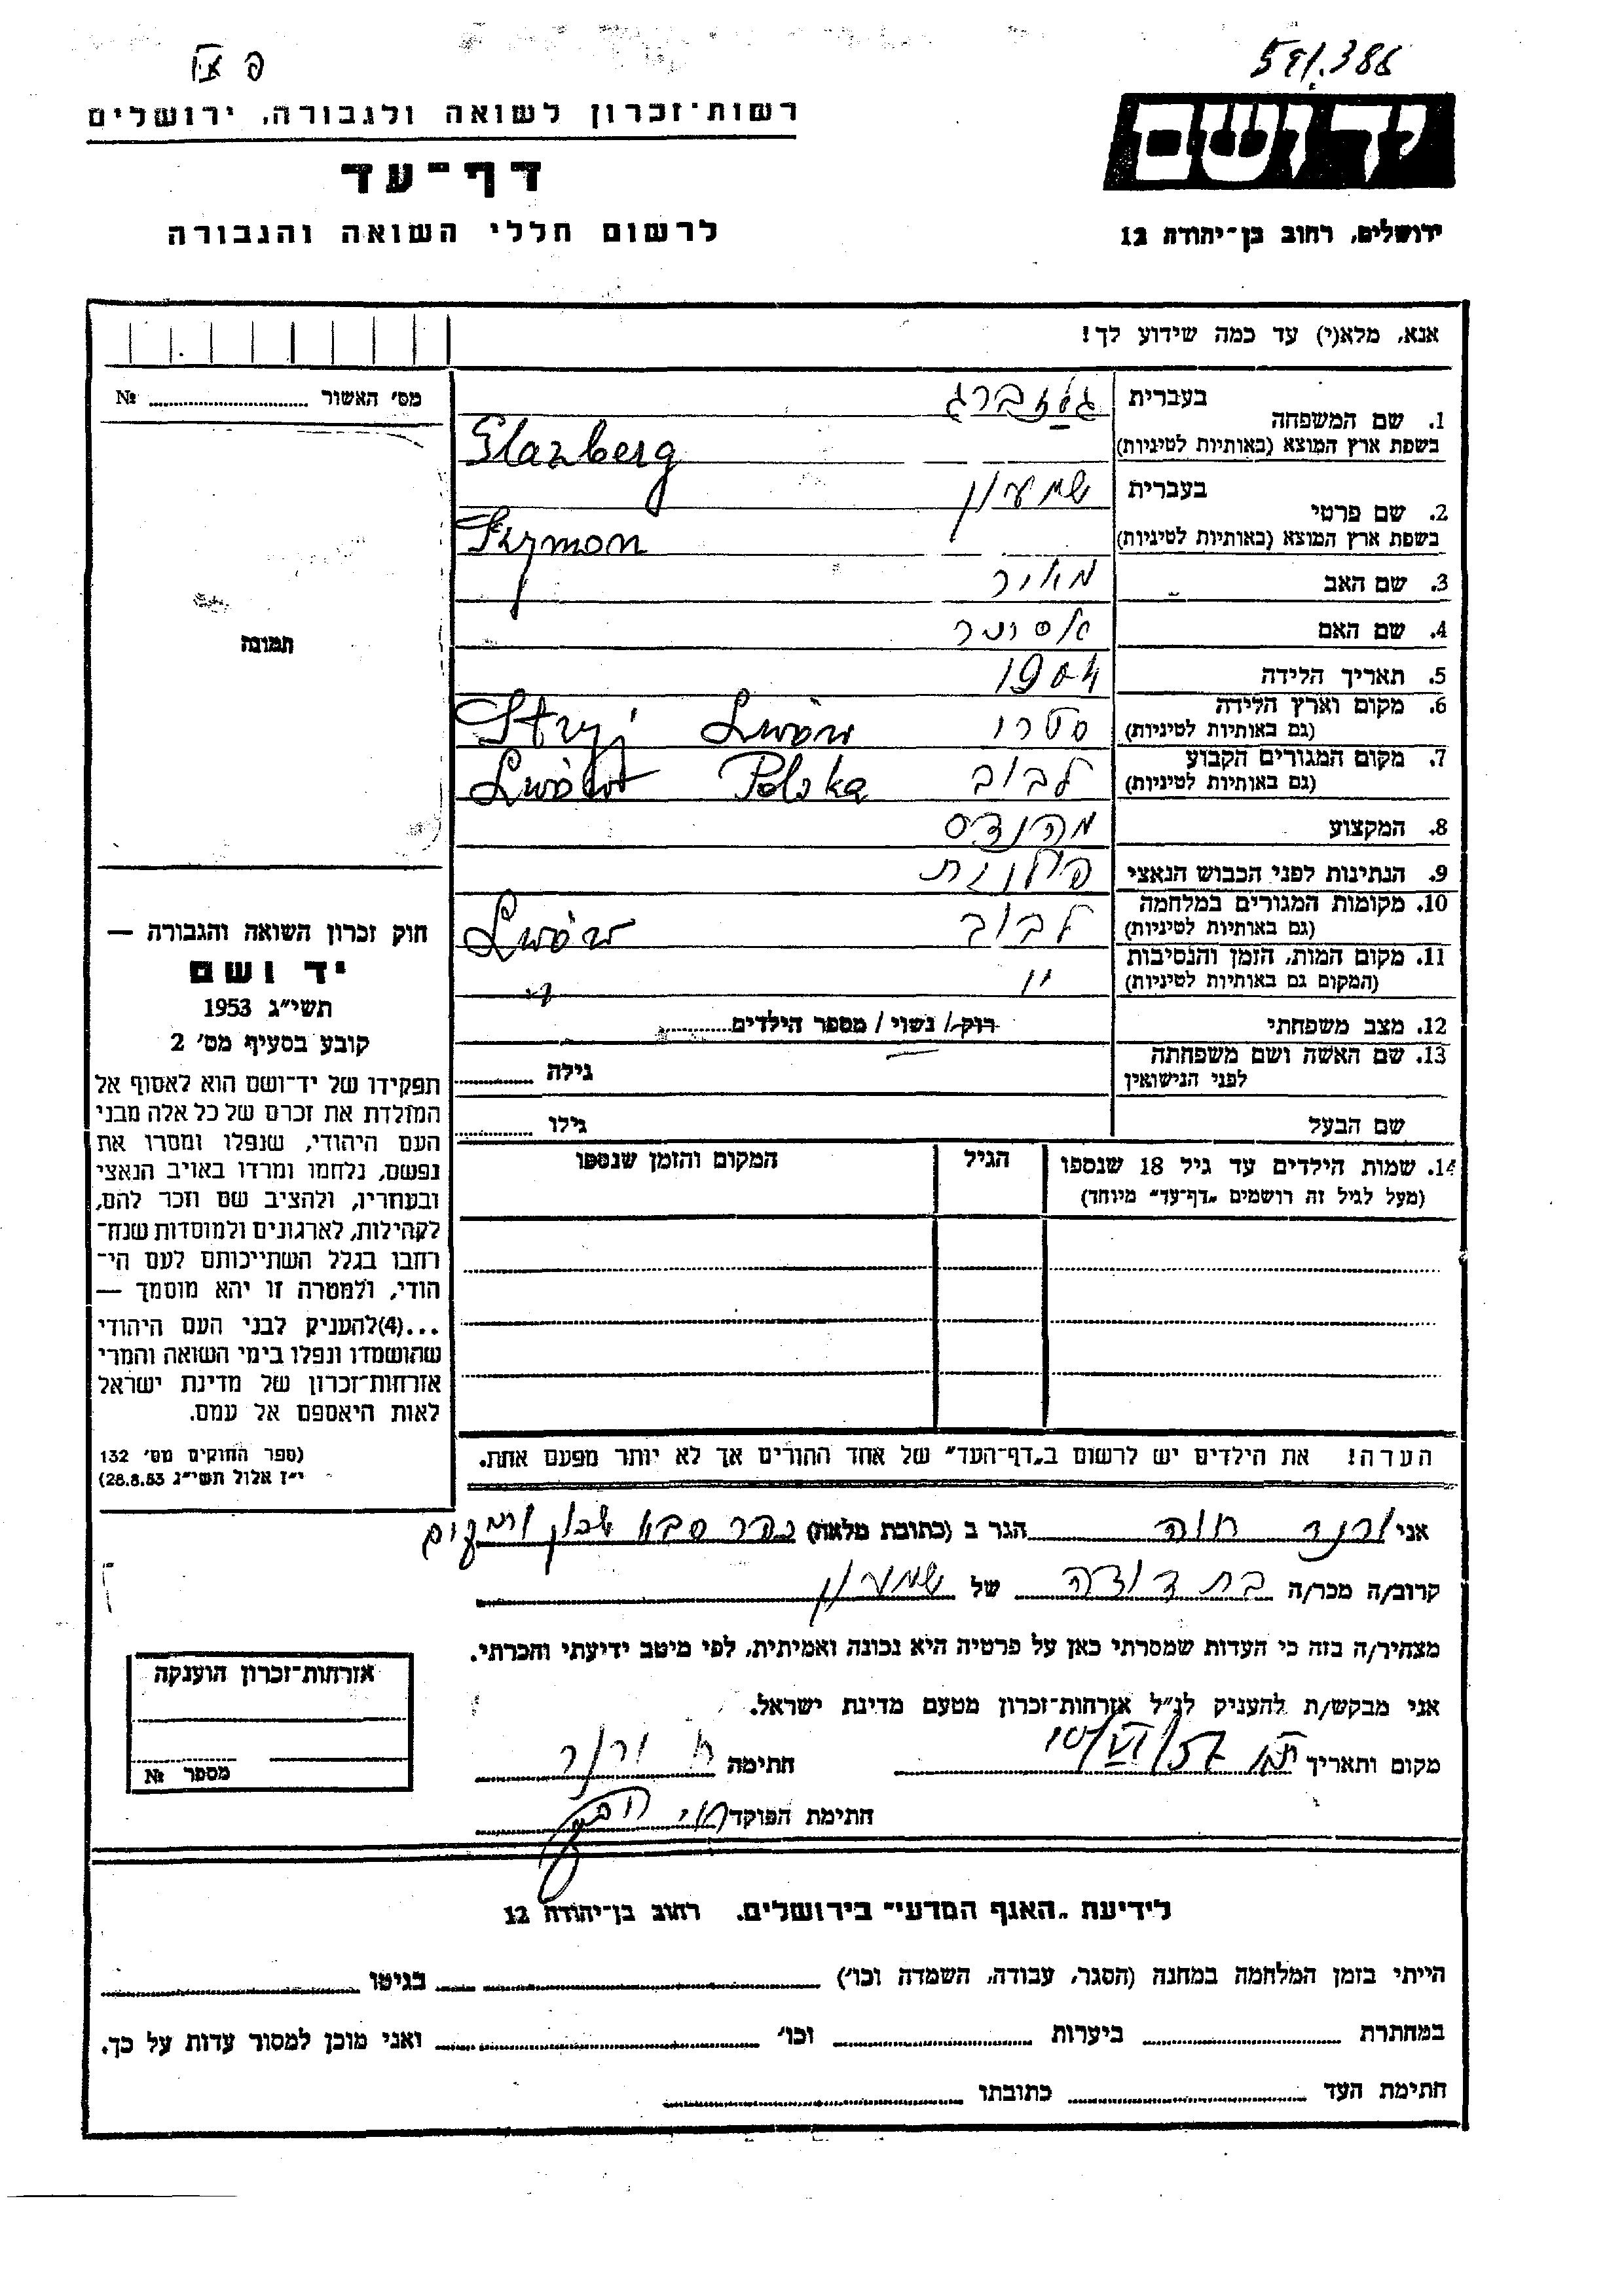 591.386
יד ושם
ירושלים, רחוב בן־יהודה 12
רשות־זכרון לשואה ולגבורה, ירושלים
דף־עד
לרשום חללי השואה והגבורה
אנא, מלא(י) עד כמה שידוע לך!
מס׳ האשור № ........
1. שם המשפחה
בעברית גלזברג
בשפת ארץ המוצא (באותיות לטיניות) Glazberg
2. שם פרטי
בעברית שמעון
בשפת ארץ המוצא (באותיות לטיניות) Szymon
3. שם האב מאיר
4. שם האם אסתר
5. תאריך הלידה 1904
6. מקום וארץ הלידה סטרי Stryj Lwów
(גם באותיות לטיניות)
7. מקום המגורים הקבוע לבוב Lwów Polska
(גם באותיות לטיניות)
8. המקצוע מהנדס
9. הנתינות לפני הכבוש הנאצי פולנית
10. מקומות המגורים במלחמה לבוב Lwów
(גם באותיות לטיניות)
11. מקום המות, הזמן והנסיבות "
(המקום גם באותיות לטיניות)
12. מצב משפחתי רוק / נשוי / מספר הילדים........
13. שם האשה ושם משפחתה
לפני הנישואין
גילה ........
שם הבעל גילו ........
14. שמות הילדים עד גיל 18 שנספו הגיל המקום והזמן שנספו
(מעל לגיל זה רושמים „דף־עד" מיוחד)
הערה! את הילדים יש לרשום ב„דף־העד" של אחד ההורים אך לא יותר מפעם אחת.
תמונה
חוק זכרון השואה והגבורה —
יד ושם
תשי״ג 1953
קובע בסעיף מס׳ 2
תפקידו של יד־ושם הוא לאסוף אל
המולדת את זכרם של כל אלה מבני
העם היהודי, שנפלו ומסרו את
נפשם, נלחמו ומרדו באויב הנאצי
ובעוזריו, ולהציב שם וזכר להם,
לקהילות, לארגונים ולמוסדות שנח־
רחבו בגלל השתייכותם לעם הי־
הודי, ולמטרה זו יהא מוסמך —
...(4)להעניק לבני העם היהודי
שהושמדו ונפלו בימי השואה והמרי
אזרחות־זכרון של מדינת ישראל
לאות היאספם אל עמם.
(ספר החוקים מס׳ 132
י״ז אלול תשי״ג 28.8.53)
אני ורנר חוה הגר ב (כתובת מלאה) כפר סבא שכון ותיקים
קרוב/ה מכר/ה בת דודה של שמעון
מצהיר/ה בזה כי העדות שמסרתי כאן על פרטיה היא נכונה ואמיתית, לפי מיטב ידיעתי והכרתי.
אני מבקש/ת להעניק לנ״ל אזרחות־זכרון מטעם מדינת ישראל.
מקום ותאריך 10/VI/57 חתימה ח ורנר
חתימת הפוקד
אזרחות־זכרון הוענקה
מספר №
לידיעת „האגף המדעי" בירושלים, רחוב בן־יהודה 12
הייתי בזמן המלחמה במחנה (הסגר, עבודה, השמדה וכו׳) ........ בגיטו ........
במחתרת ........ ביערות ........ וכו׳ ........ ואני מוכן למסור עדות על כך.
חתימת העד ........ כתובתו ........